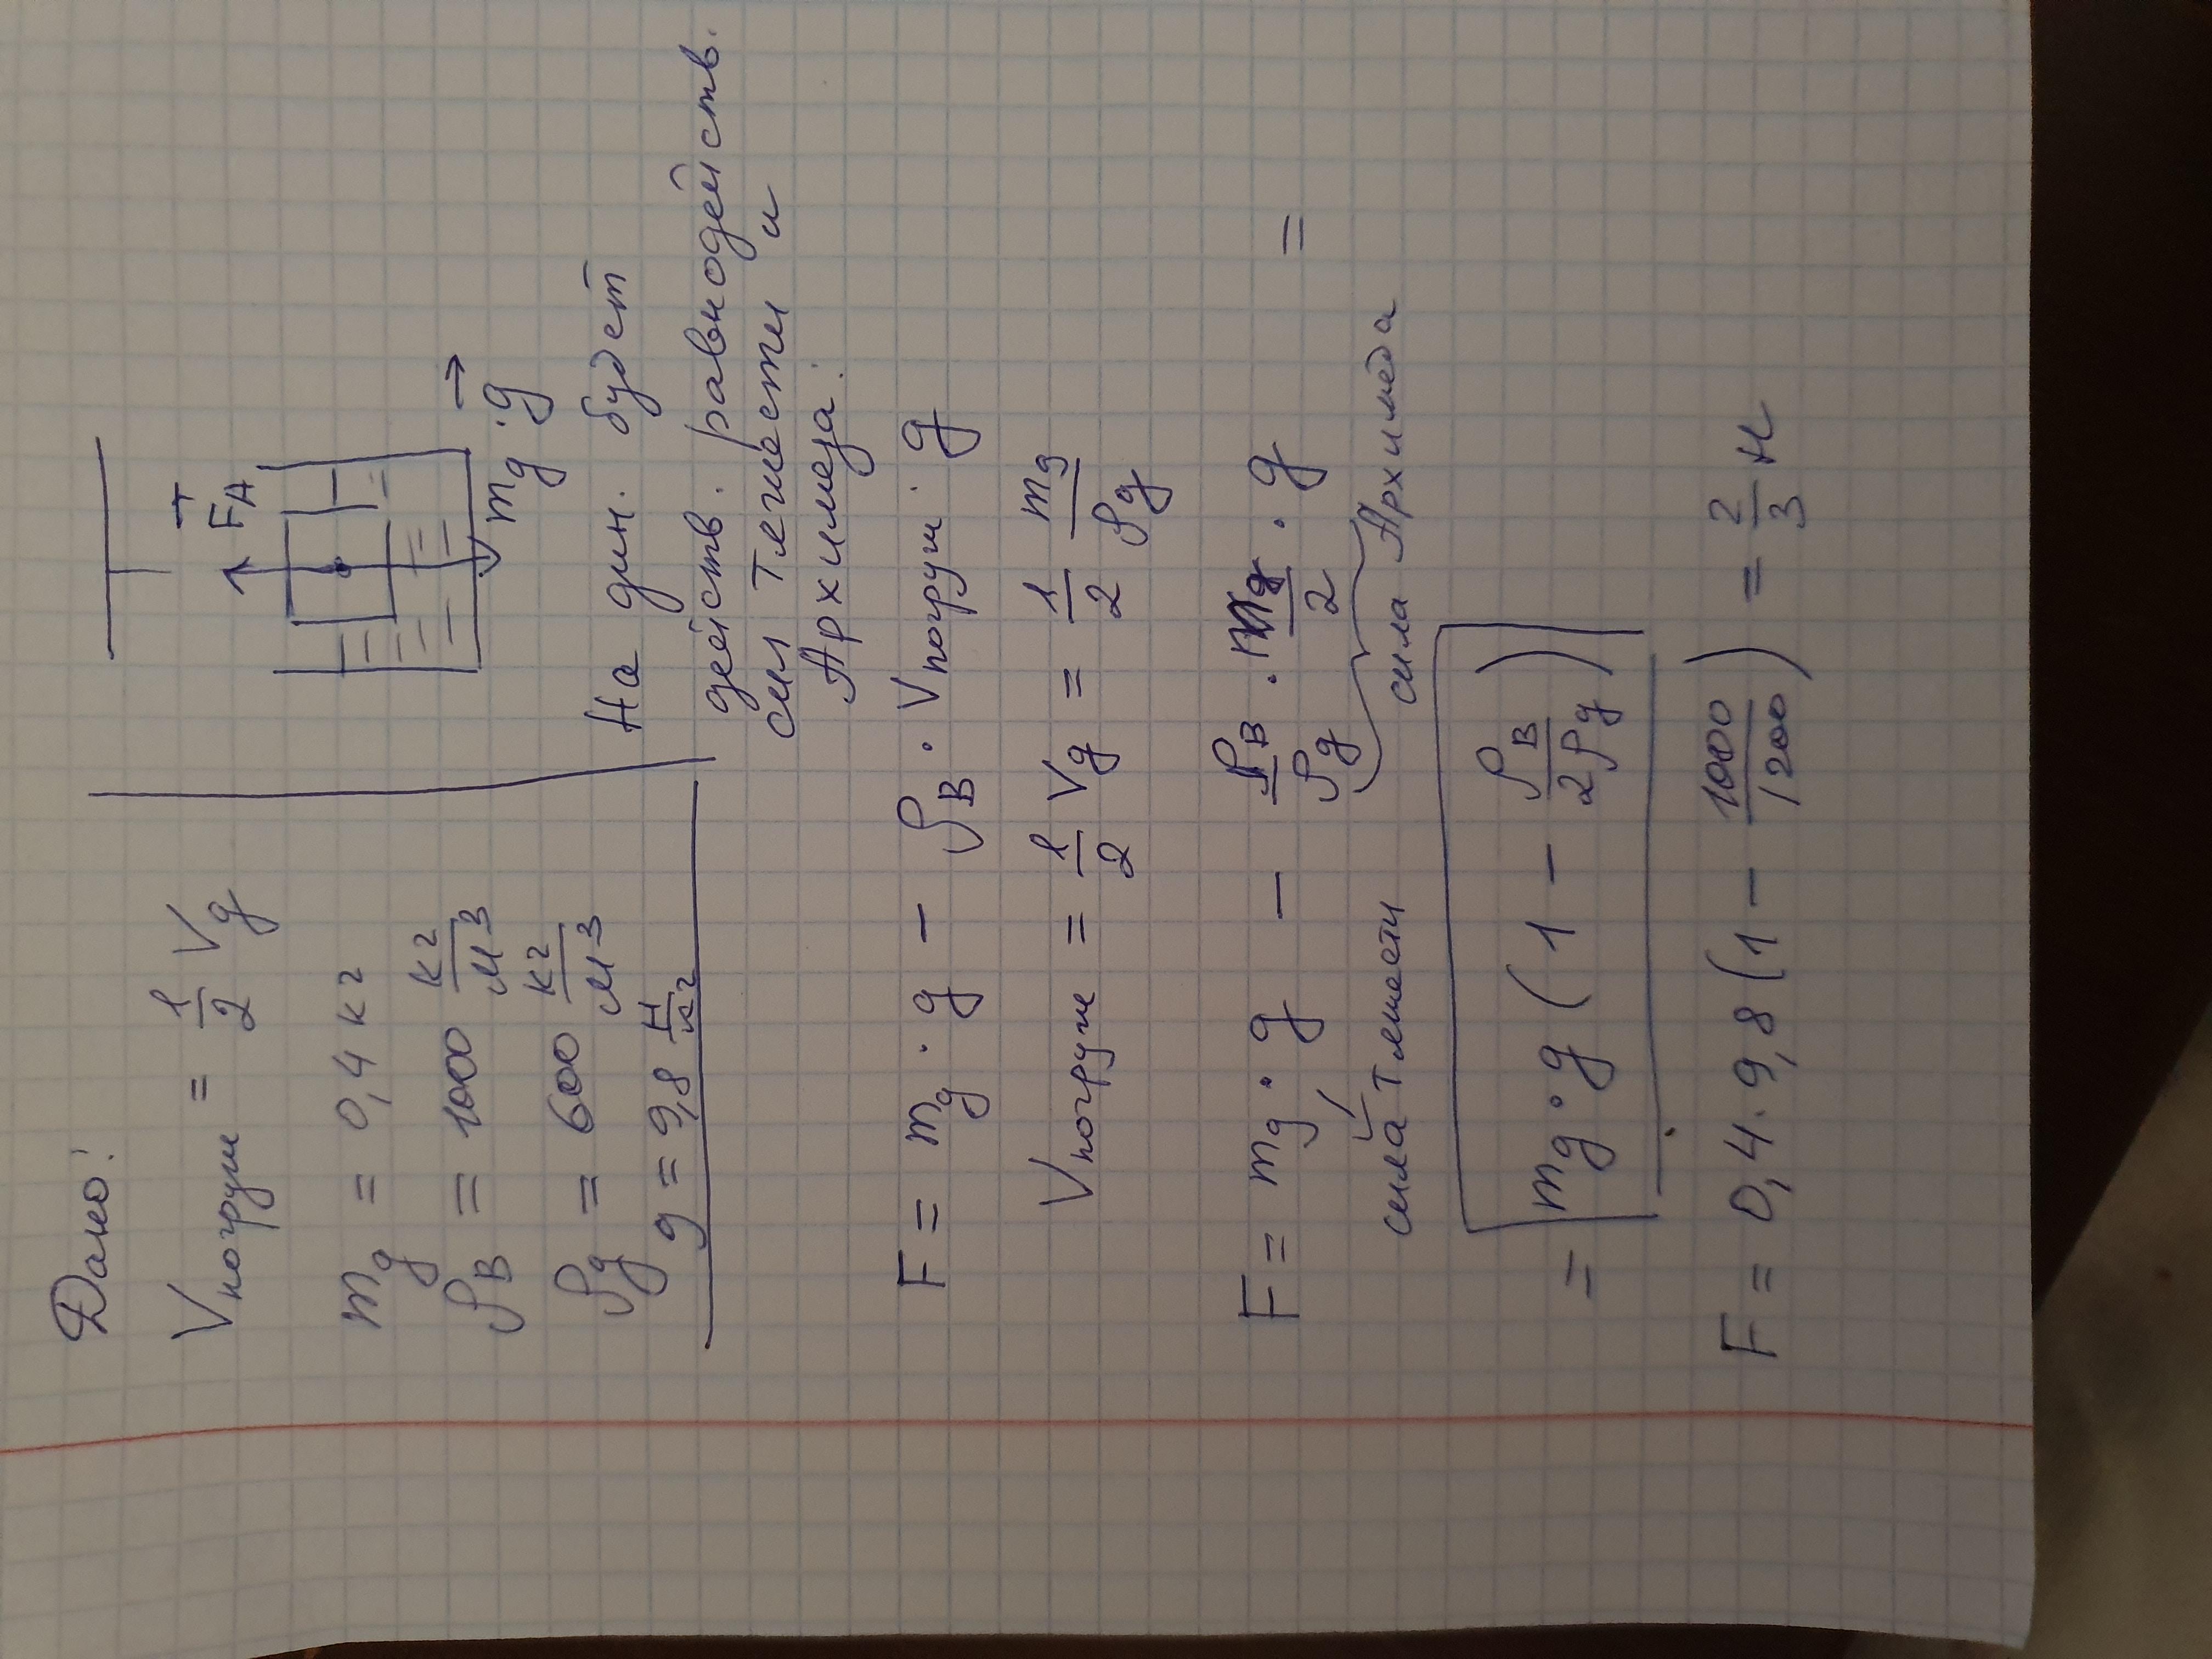 Дано:
Vпогруж = 1/2 Vд
mд = 0,4 кг
ρв = 1000 кг/м3
ρд = 600 кг/м3
g = 9,8 Н/кг
FА
mд · g
На дин. будет
действ. равнодейств.
сил тяжести и
Архимеда:
F = mд · g − ρв · Vпогруж · g
Vпогруж = 1/2 Vд = 1/2 mд/ρд
F = mд · g − ρв/ρд · mд/2 · g =
сила тяжести сила Архимеда
= mд · g (1 − ρв/2ρд)
F = 0,4 · 9,8 (1 − 1000/1200) = 2/3 Н